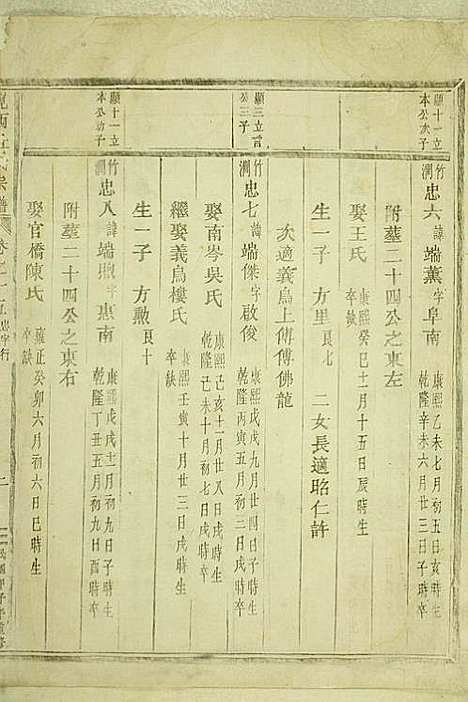 顯十一立
本公次子
竹澗
忠六 諱端薰 字阜南
康熙乙未七月初五日亥時生
乾隆辛未六月廿三日子時卒
附塟二十四公之東左
娶王氏
康熙癸巳十二月十五日辰時生
卒缺
生一子 方里 良七
二女長適昭仁許
次適義烏上傅傅佛龍
顯三立言
公三子
竹澗
忠七 諱端傑 字啟俊
康熙戊戌九月廿四日子時生
乾隆丙寅五月廿一日戌時卒
娶南岑吳氏
康熙己亥十一月廿八日戌時生
乾隆己未十月初三日戌時卒
繼娶義烏樓氏
康熙壬寅十月廿三日戌時生
卒缺
生一子 方勲 良十
顯十一立
本公幼子
竹澗
忠八 諱端煦 字惠南
康熙戊戌十二月初九日子時生
乾隆丁丑五月初九日酉時卒
附塟二十四公之東右
娶官橋陳氏
雍正癸卯六月初六日巳時生
卒缺
宗譜
忠字行